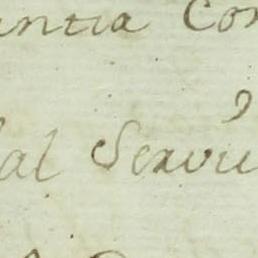 antia Con
al Servi